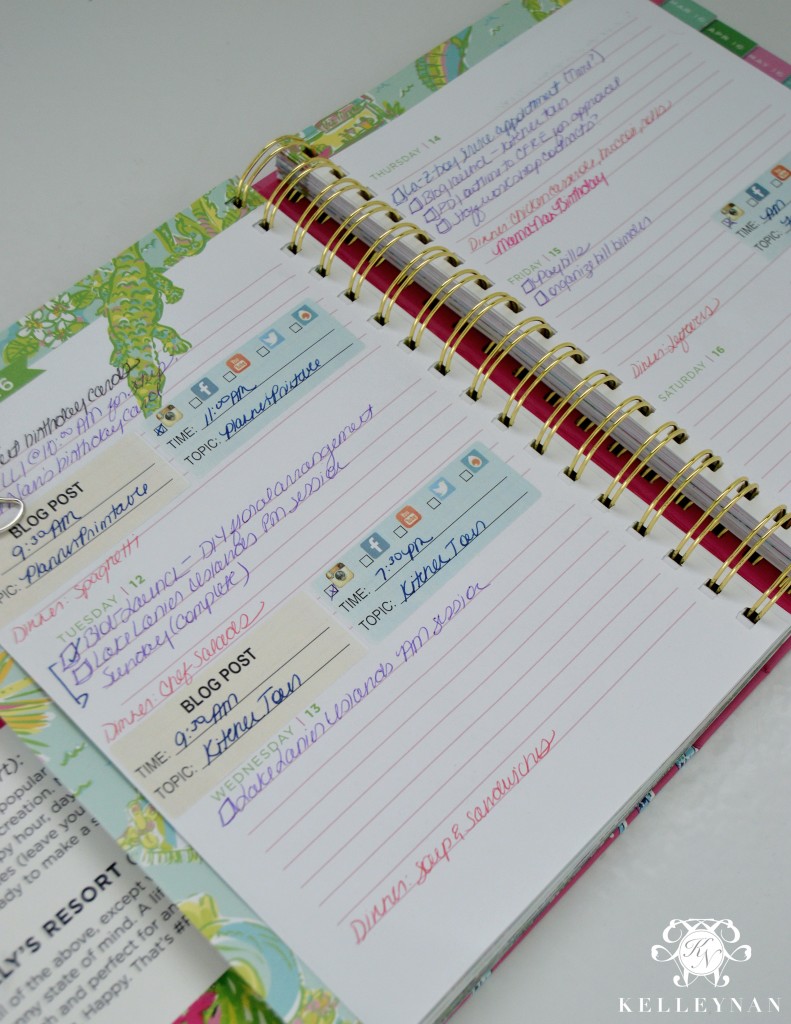 MAR 16
APR 16
MAY 16
6
birthday cards
10:00 AM
birthday
TIME: 11:00 AM
TOPIC: Planner Printable
BLOG POST
9:30 AM
Planner Printable
Dinner: Spaghetti
TUESDAY | 12
Blog Launch - DIY floral arrangement
Lake Lanier Islands PM session
Sunday (Complete)
TIME: 7:30 PM
TOPIC: Kitchen Tour
Dinner: Chef Salads
BLOG POST
TIME: 9:30 AM
TOPIC: Kitchen Tour
WEDNESDAY | 13
Lake Lanier Islands AM session
Dinner: Soup & Sandwiches
THURSDAY | 14
La-Z-Boy store appointment
Blog Launch - Kitchen Tour
for approval
workshop contracts?
Dinner: Chicken casserole, broccoli, rolls
Mama Nan Birthday
TIME: AM
TOPIC:
FRIDAY | 15
Pay bills
organize bill binder
Dinner: Leftovers
SATURDAY | 16
rt):
popular
creation.
py hour, day
es (leave you
ady to make a s
LY'S RESORT
ll of the above, except
ny state of mind. A lif
h and perfect for an
. Happy. That's #
KN
KELLEYNAN